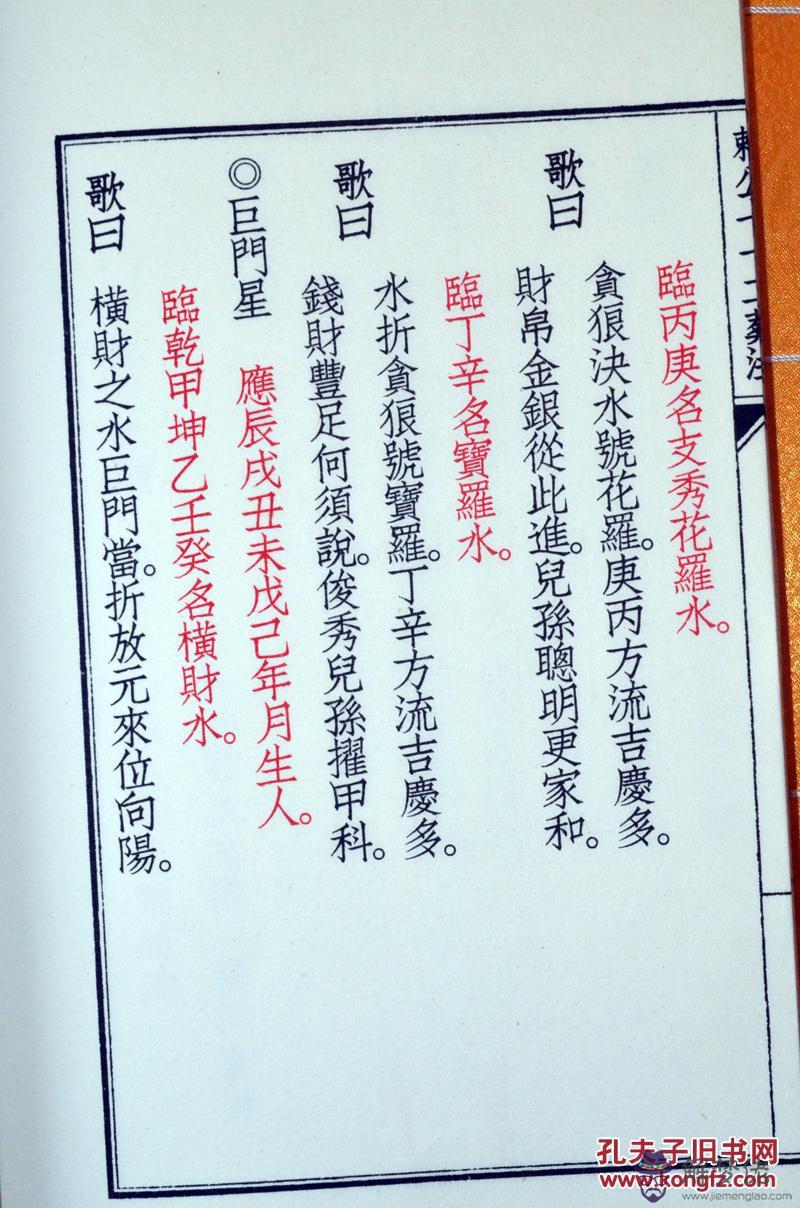 臨丙庚名支秀花羅水。
歌曰
貪狼決水號花羅。庚丙方流吉慶多。
財帛金銀從此進。兒孫聰明更家和。
臨丁辛名寶羅水。
歌曰
水折貪狼號寶羅。丁辛方流吉慶多。
錢財豐足何須說。俊秀兒孫擢甲科。
◎巨門星 應辰戌丑未戊己年月生人。
臨乾甲坤乙壬癸名橫財水。
歌曰
橫財之水巨門當。折放元來位向陽。
孔夫子旧书网
www.kongfz.com
www.jiemenglao.com